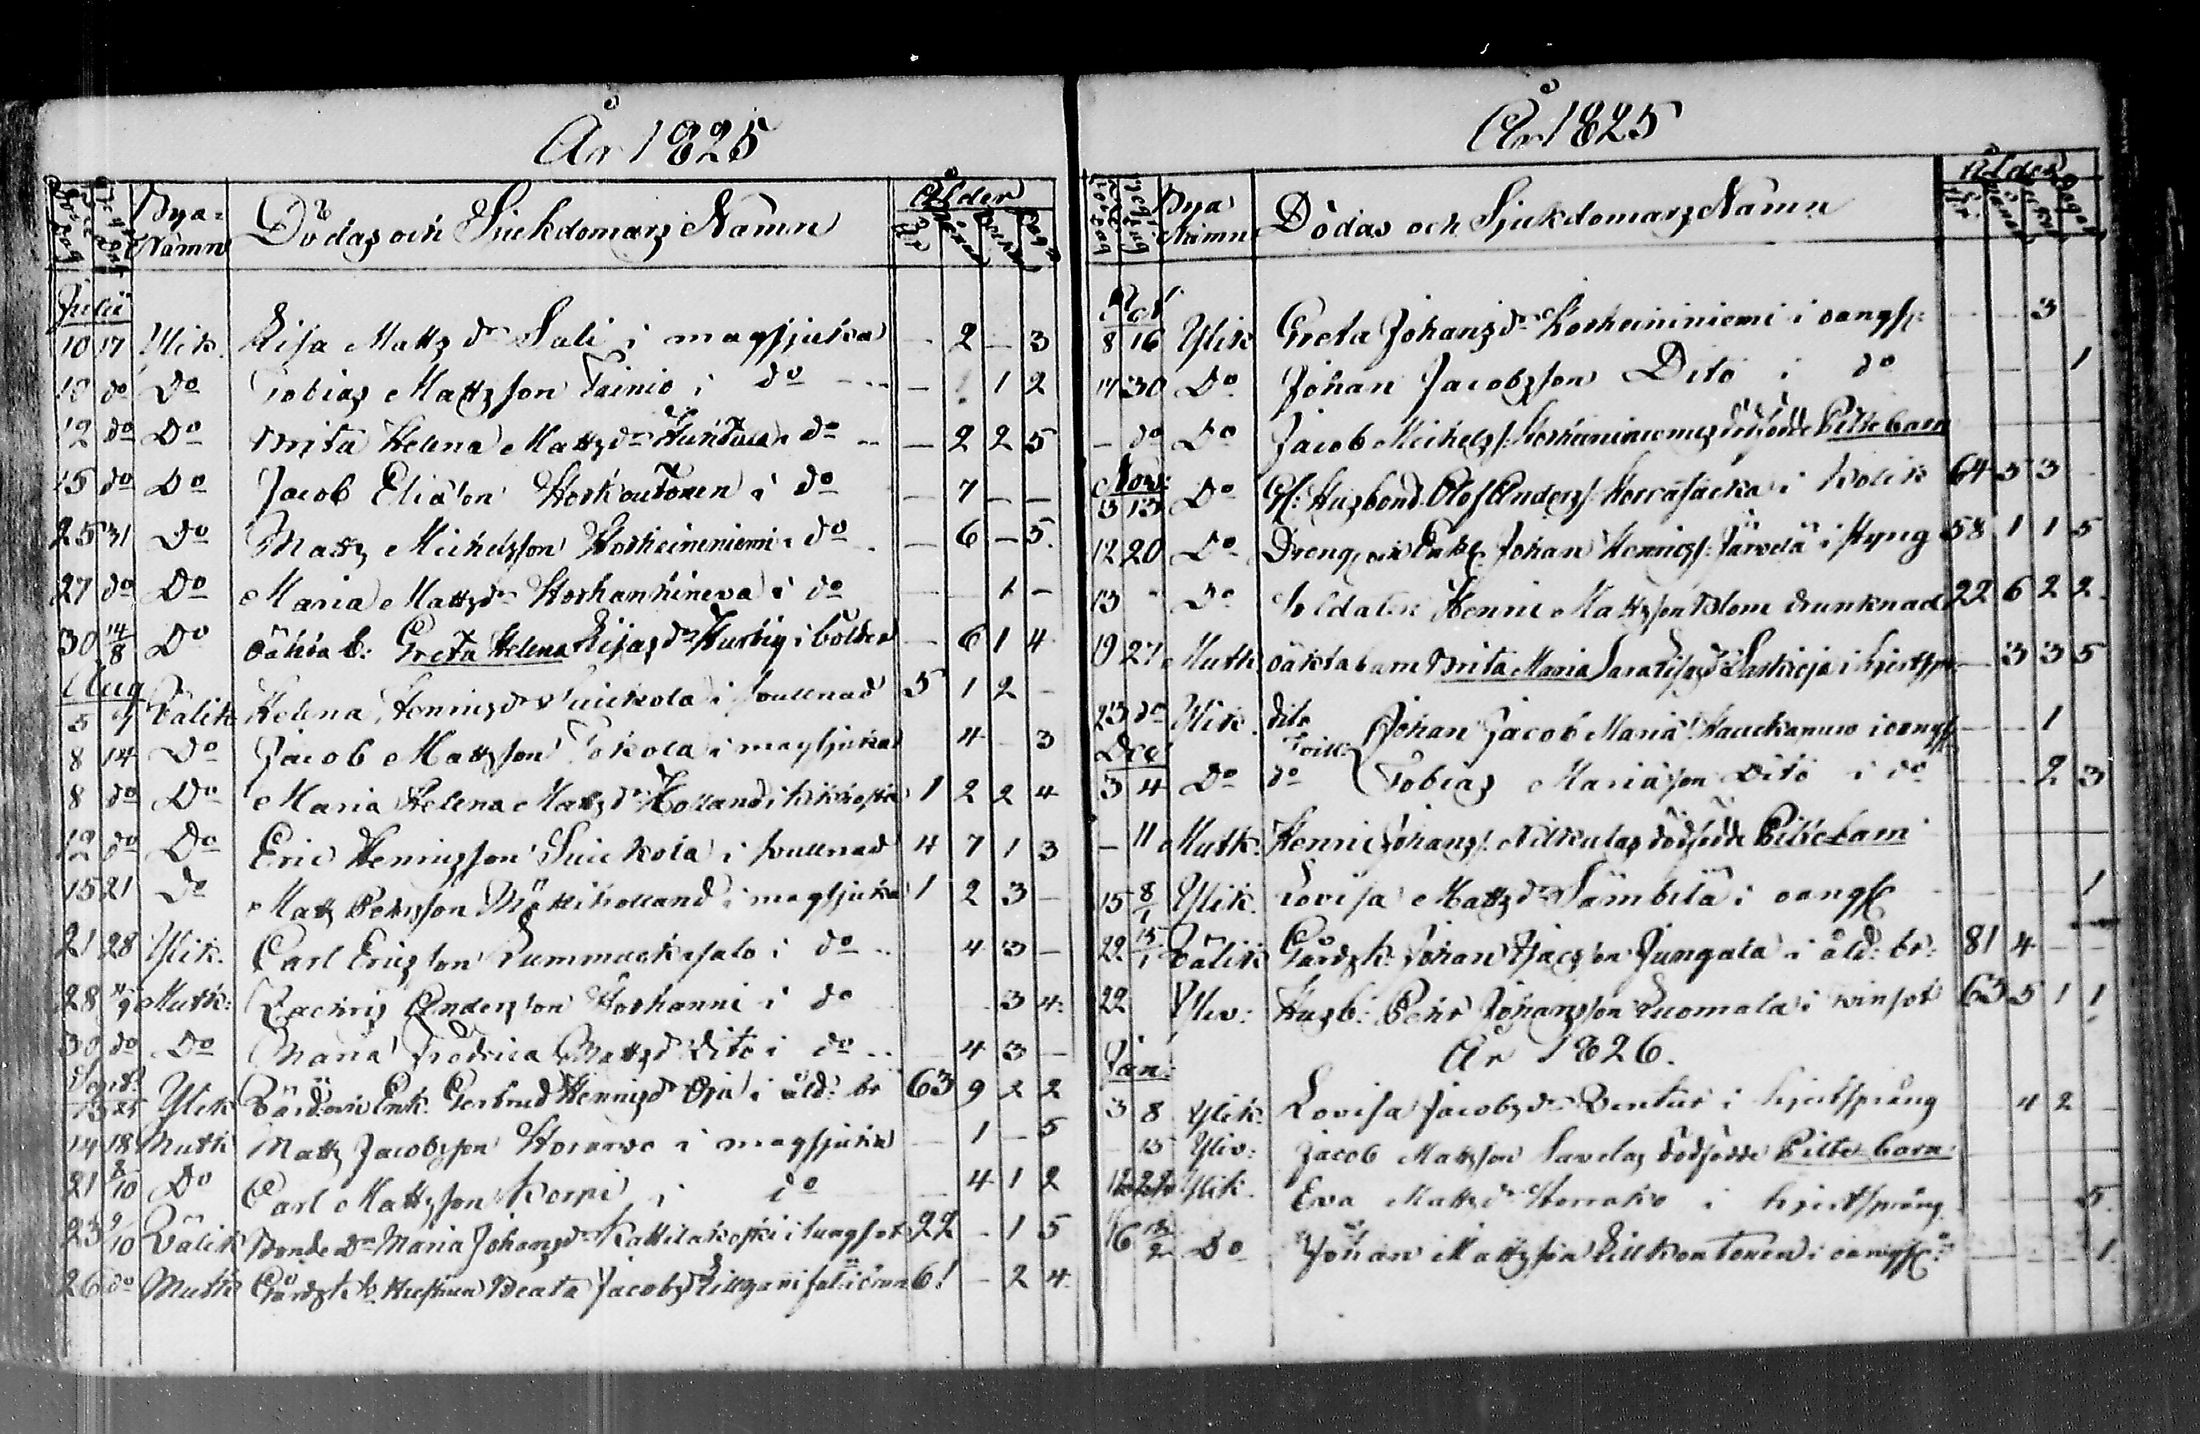 År 1825
Bya-Namn Dödas och Siuckdomars Namn Ålder
År Månad Veckor Dagar
Julii
10 17 Ylik. Lisa Matts dr Sali i magsjuka - 2 - 3
10 do Do Tobias Mattsson Tainio i do - 1 2
12 do Do Brita Helena Matts dr i do - 2 2 5
15 do Do Jacob Eliason Korkoutonen i do - 7 - -
25 31 Do Matts Michelsson Korheineniemi i do - 6 - 5
27 do Do Maria Matts dr Korhanhineva i do 1 -
30 14/8 Do oäkta b: Greta Helena Lisas dr i bölder - 6 1 4
Aug
5 9 Välik Helena Hennigs dr Suickola i svullnad 5 1 2 -
8 14 Do Jacob Mattsson Tokola i magsjuka 4 3
8 do Do Maria Helena Matts dr Holland i kikhosta 1 2 2 4
12 do Do Eric Henrigsson Suickola i svullnad 4 7 1 3
15 21 Do Matts Pehrsson Mättiholland i magsjuka 1 2 3 -
21 28 Ylik. Carl Ericsson Rummucksalo i do 4 3 -
28 4/9 Mutk: Zachris Andersson Korhanni i do 3 4
30 do Do Maria Fredrica Matts d: dito i do 4 3 -
Sept:
13 25 Ylik Enk. Gertrud Hennigs dr Oja i åld: br 63 9 2 2
14 18 Mutk Matts Jacobsson Korarvo i magsjuka - 1 - 5
21 2/10 Do Carl Mattsson Korpi i do - 4 1 2
23 9/10 Välik Bonde dr Maria Johans dr Kattilakoski i lungsot 22 - 1 5
26 do Mutk Gårdsk: Hustrun Beata Jacobs d 61 - 2 4
År 1825
Bya Namn Dödas och Sjukdomars Namn Ålder
År Månad Veckor Dagar
Oct
8 16 Ylik Greta Johans dr Korheininiemi i oangif: 3 -
17 30 Do Johan Jacobsson Dito i do 1
- do Do Jacob Michels s: Korheininiemis dödfödde Piltebarn
Nov:
13 13 Do Gl: Husbond Olof Anders s: Herrasacka i kolik 64 5 3 -
12 20 Do Dreng och Enkl: Johan Hennigs s: Järvelä i styng 58 1 1 5
13 " Do Soldaten Henric Mattsson Blom drunknad 22 6 2 2
19 27 Mutk. oäkta barn Brita Maria i hjertspr - 3 3 5
23 do Ylik. dito Johan Jacob Maria s: Hauckanuro i oangif 1
Dec
Tvill:
3 4 Do do Tobias Maria son Dito i do 2 3
- 11 Mutk: Henric Johans s: Nilkulas dödfödde Piltebarn
15 8/1 Ylik. Lovisa Matts dr Sämbilä i oangif 1
22 15/1 Välik Gårdsk: Johan Isacson Jungala i åld: br: 81 4 - -
22 Yliv: Husb: Pehr Johansson Tuomala i vinsot 63 5 1 1
År 1826.
Jan:
3 8 Ylik: Lovisa Jacobs dr Ventur i hjertsprång 4 2 -
15 Yliv: Jacob Mattson Savelas dödfödde Piltebarn:
12 22 Ylik. Eva Matts dr Herrako i hjertsprång 5.
16 12/2 Do Johan Mattsson Lillkontonen i oangif: 1.